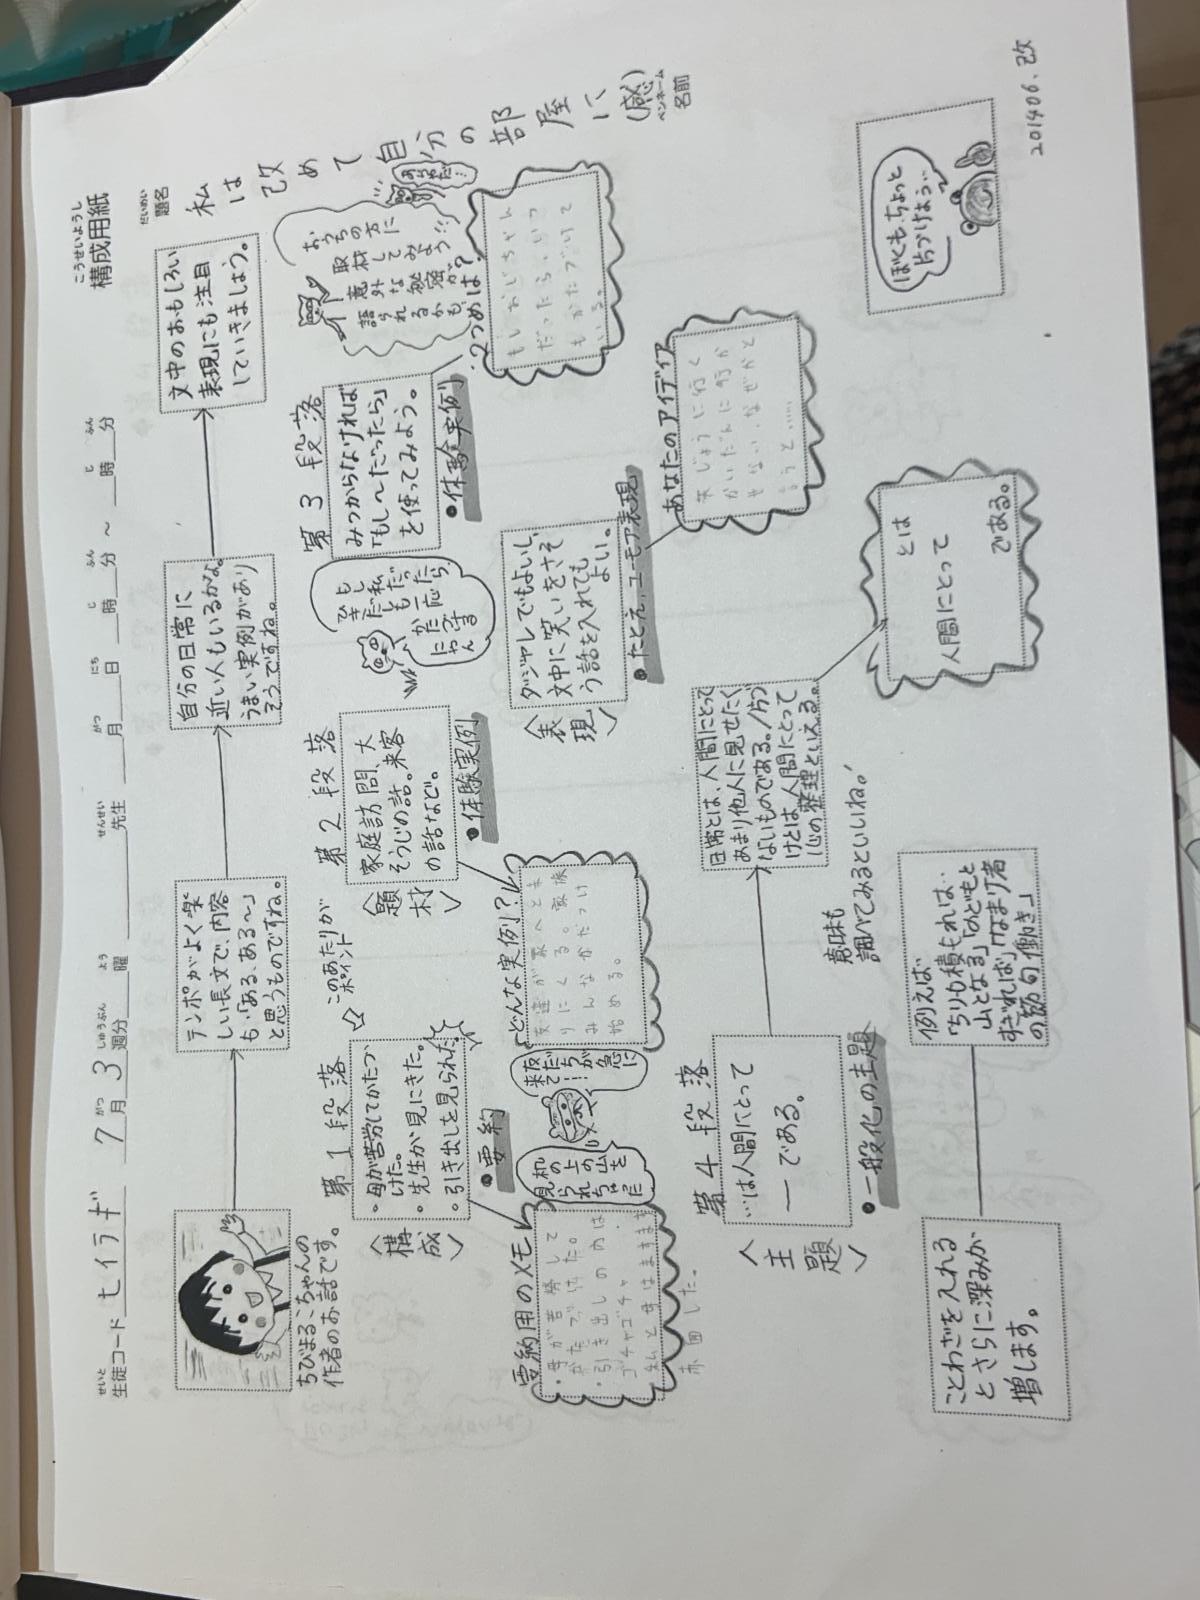 こうせいようし
構成用紙
せいと
生徒コード ヒイラギ 7月 3週分 曜 先生 月 日 時 分 ～ 時 分
がつ しゅうぶん よう せんせい がつ にち じ ふん じ ふん
だいめい
題名
私は改めて自分の部屋に(感)
ペンネーム
名前
ちびまるこちゃんの
作者のお話です。
テンポがよく楽
しい長文で、内容
も「ある、ある～」
と思うものですね。
自分の日常に
近い人もいるかな。
うまい実例があり
そうですね。
文中のおもしろい
表現にも注目
していきましょう。
第1段落
〈構成〉
・母が苦労してかたづ
けた。
・先生が見にきた。
・引き出しを見られた
このあたりが
ポイント
•要約
要約用のメモ
・母が苦労して
かたづけた。
・引き出しの内は
ゴチャゴチャ
私と母はますます
赤面した。
机の上の山を
見られちゃった
第2段落
〈題材〉
家庭訪問、大
そうじの話。来客
の話など。
•体験実例
どんな実例？
友達が家へとま
りにくる。家族
みんなかたづけ
始める。
友だちが急に
来て…!
第3段落
みつからなければ
「もし～だったら」
を使ってみよう。
•体験実例
もし私だったら
ひきだしも一応
かたづける
にゃん
おうちの方に
取材してみよう!!
意外な秘密が
語られるかも。
2つめは？
もしおじちゃん
だったら、いつ
もかたづけて
いる。
〈表現〉
ダジャレでもよいし、
文中に笑いをさそ
う話を入れても
よい。
•たとえ、ユーモア表現
あなたのアイデイア
東じょうに行く
かいだんに行か
せない。なぜかと
言うと……
第4段落
〈主題〉
…は人間にとって
ー である。
•一般化の主題
日常とは、人間にとって
あまり他人に見せたく
ないものである。／片づ
けとは、人間にとって
心の整理といえる。
とは
人間にとって
である。
ことわざを入れる
とさらに深みが
増します。
例えば
「ちりも積もれば…
山となる」「のども
すぎれば」「なまけ者
の節句働き」
意味も
調べてみるといいね。
ぼくも、ちょっと
片づけよう…
201406.改